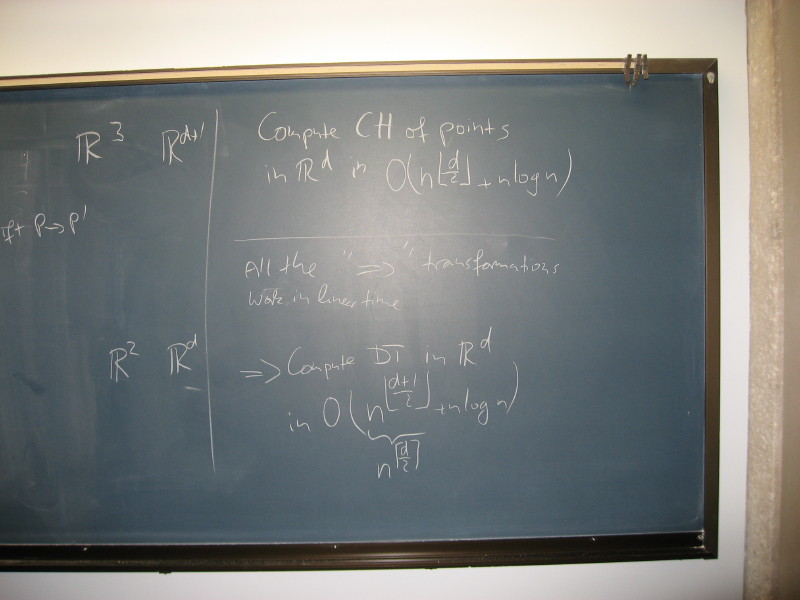 ℝ³ ℝᵈ⁺¹
P → P'
ℝ² ℝᵈ
Compute CH of points
in ℝᵈ in O(n^⌊d/2⌋ + n log n)
All the "⇒" transformations
work in linear time
⇒ Compute DT in ℝᵈ
in O(n^⌊(d+1)/2⌋ + n log n)
n^⌈d/2⌉